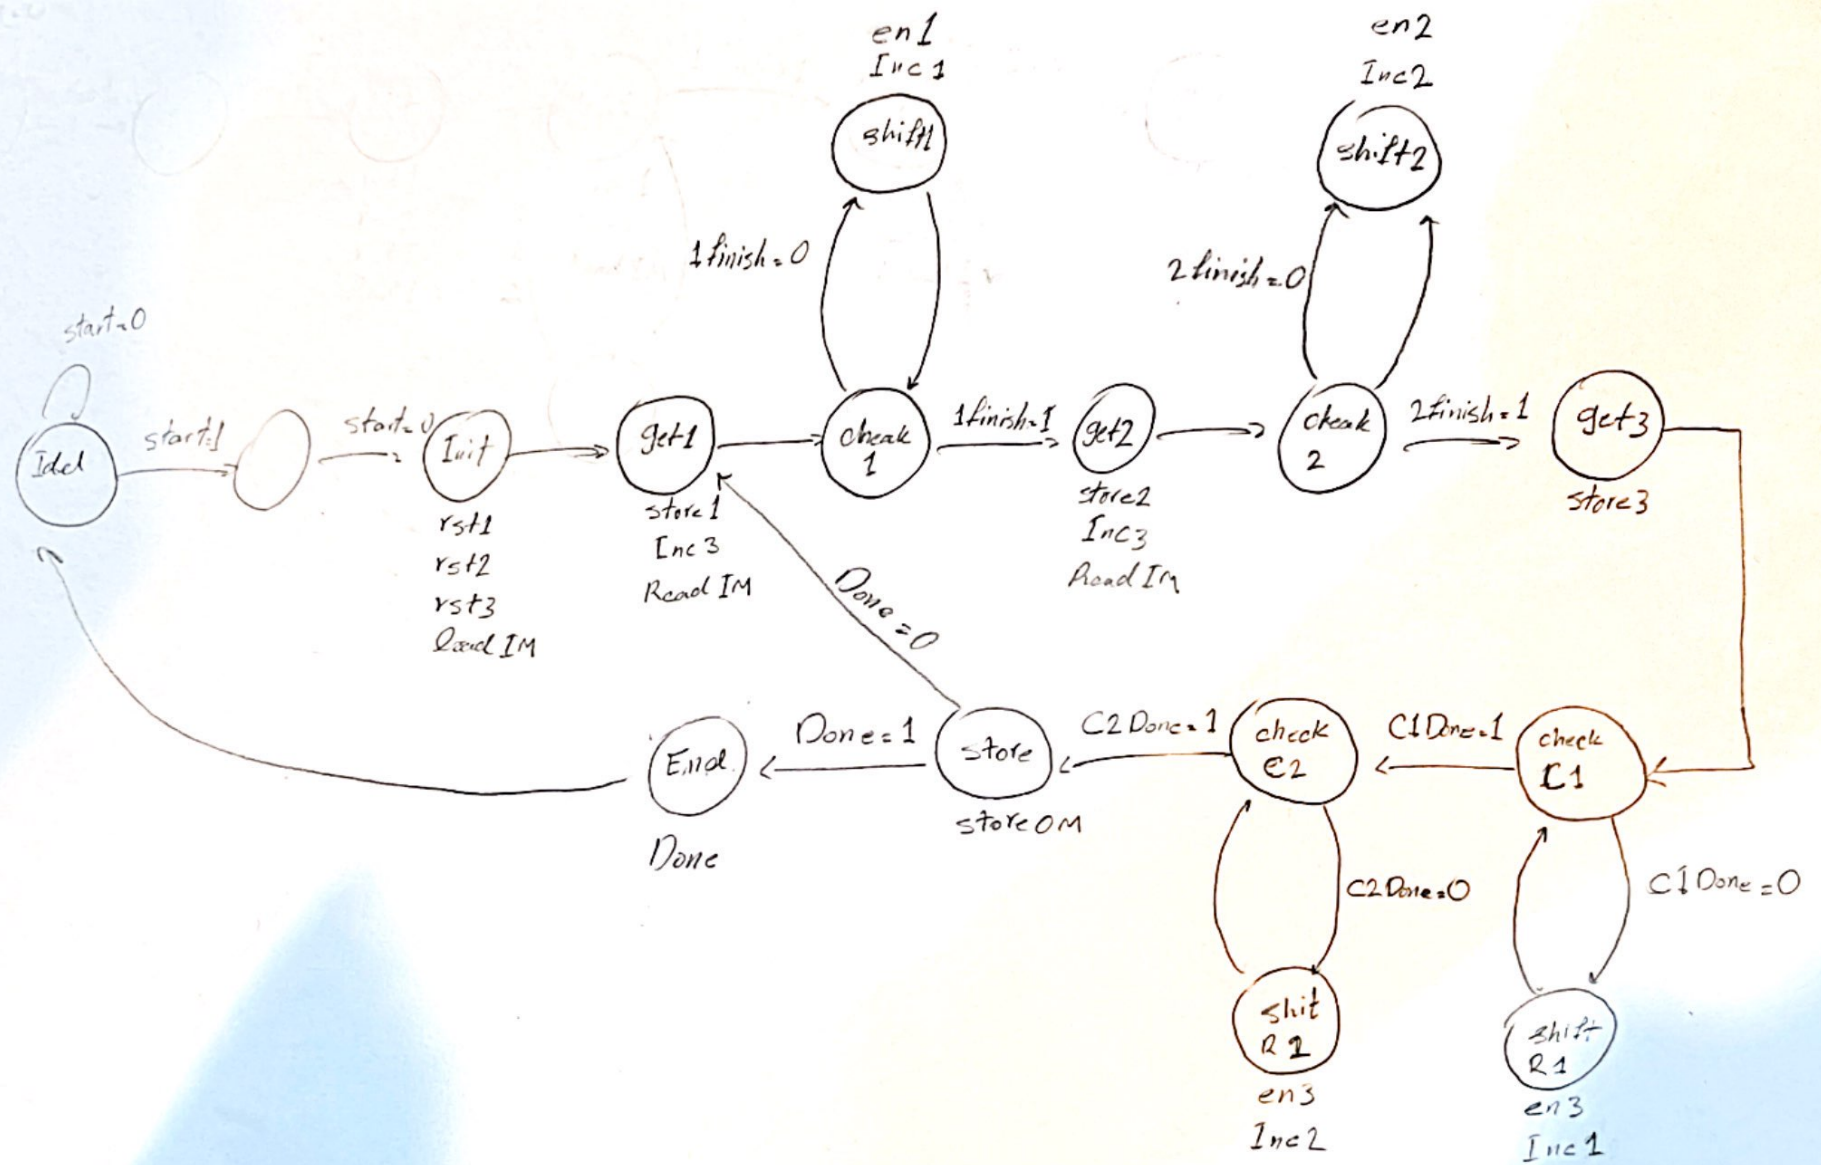 en1
Inc 1
shift1
en2
Inc2
shift2
1finish=0
2finish=0
start=0
Idel
start=1
start=0
Init
rst1
rst2
rst3
load IM
get1
store1
Inc 3
Read IM
cheak
1
1finish=1
get2
store2
Inc3
Read IM
cheak
2
2finish=1
get3
store3
Done=0
End
Done
Done=1
store
store OM
C2 Done=1
check
C2
C1 Done=1
check
C1
C2 Done=0
C1 Done=0
shit
R2
en3
Inc2
shift
R1
en3
Inc1